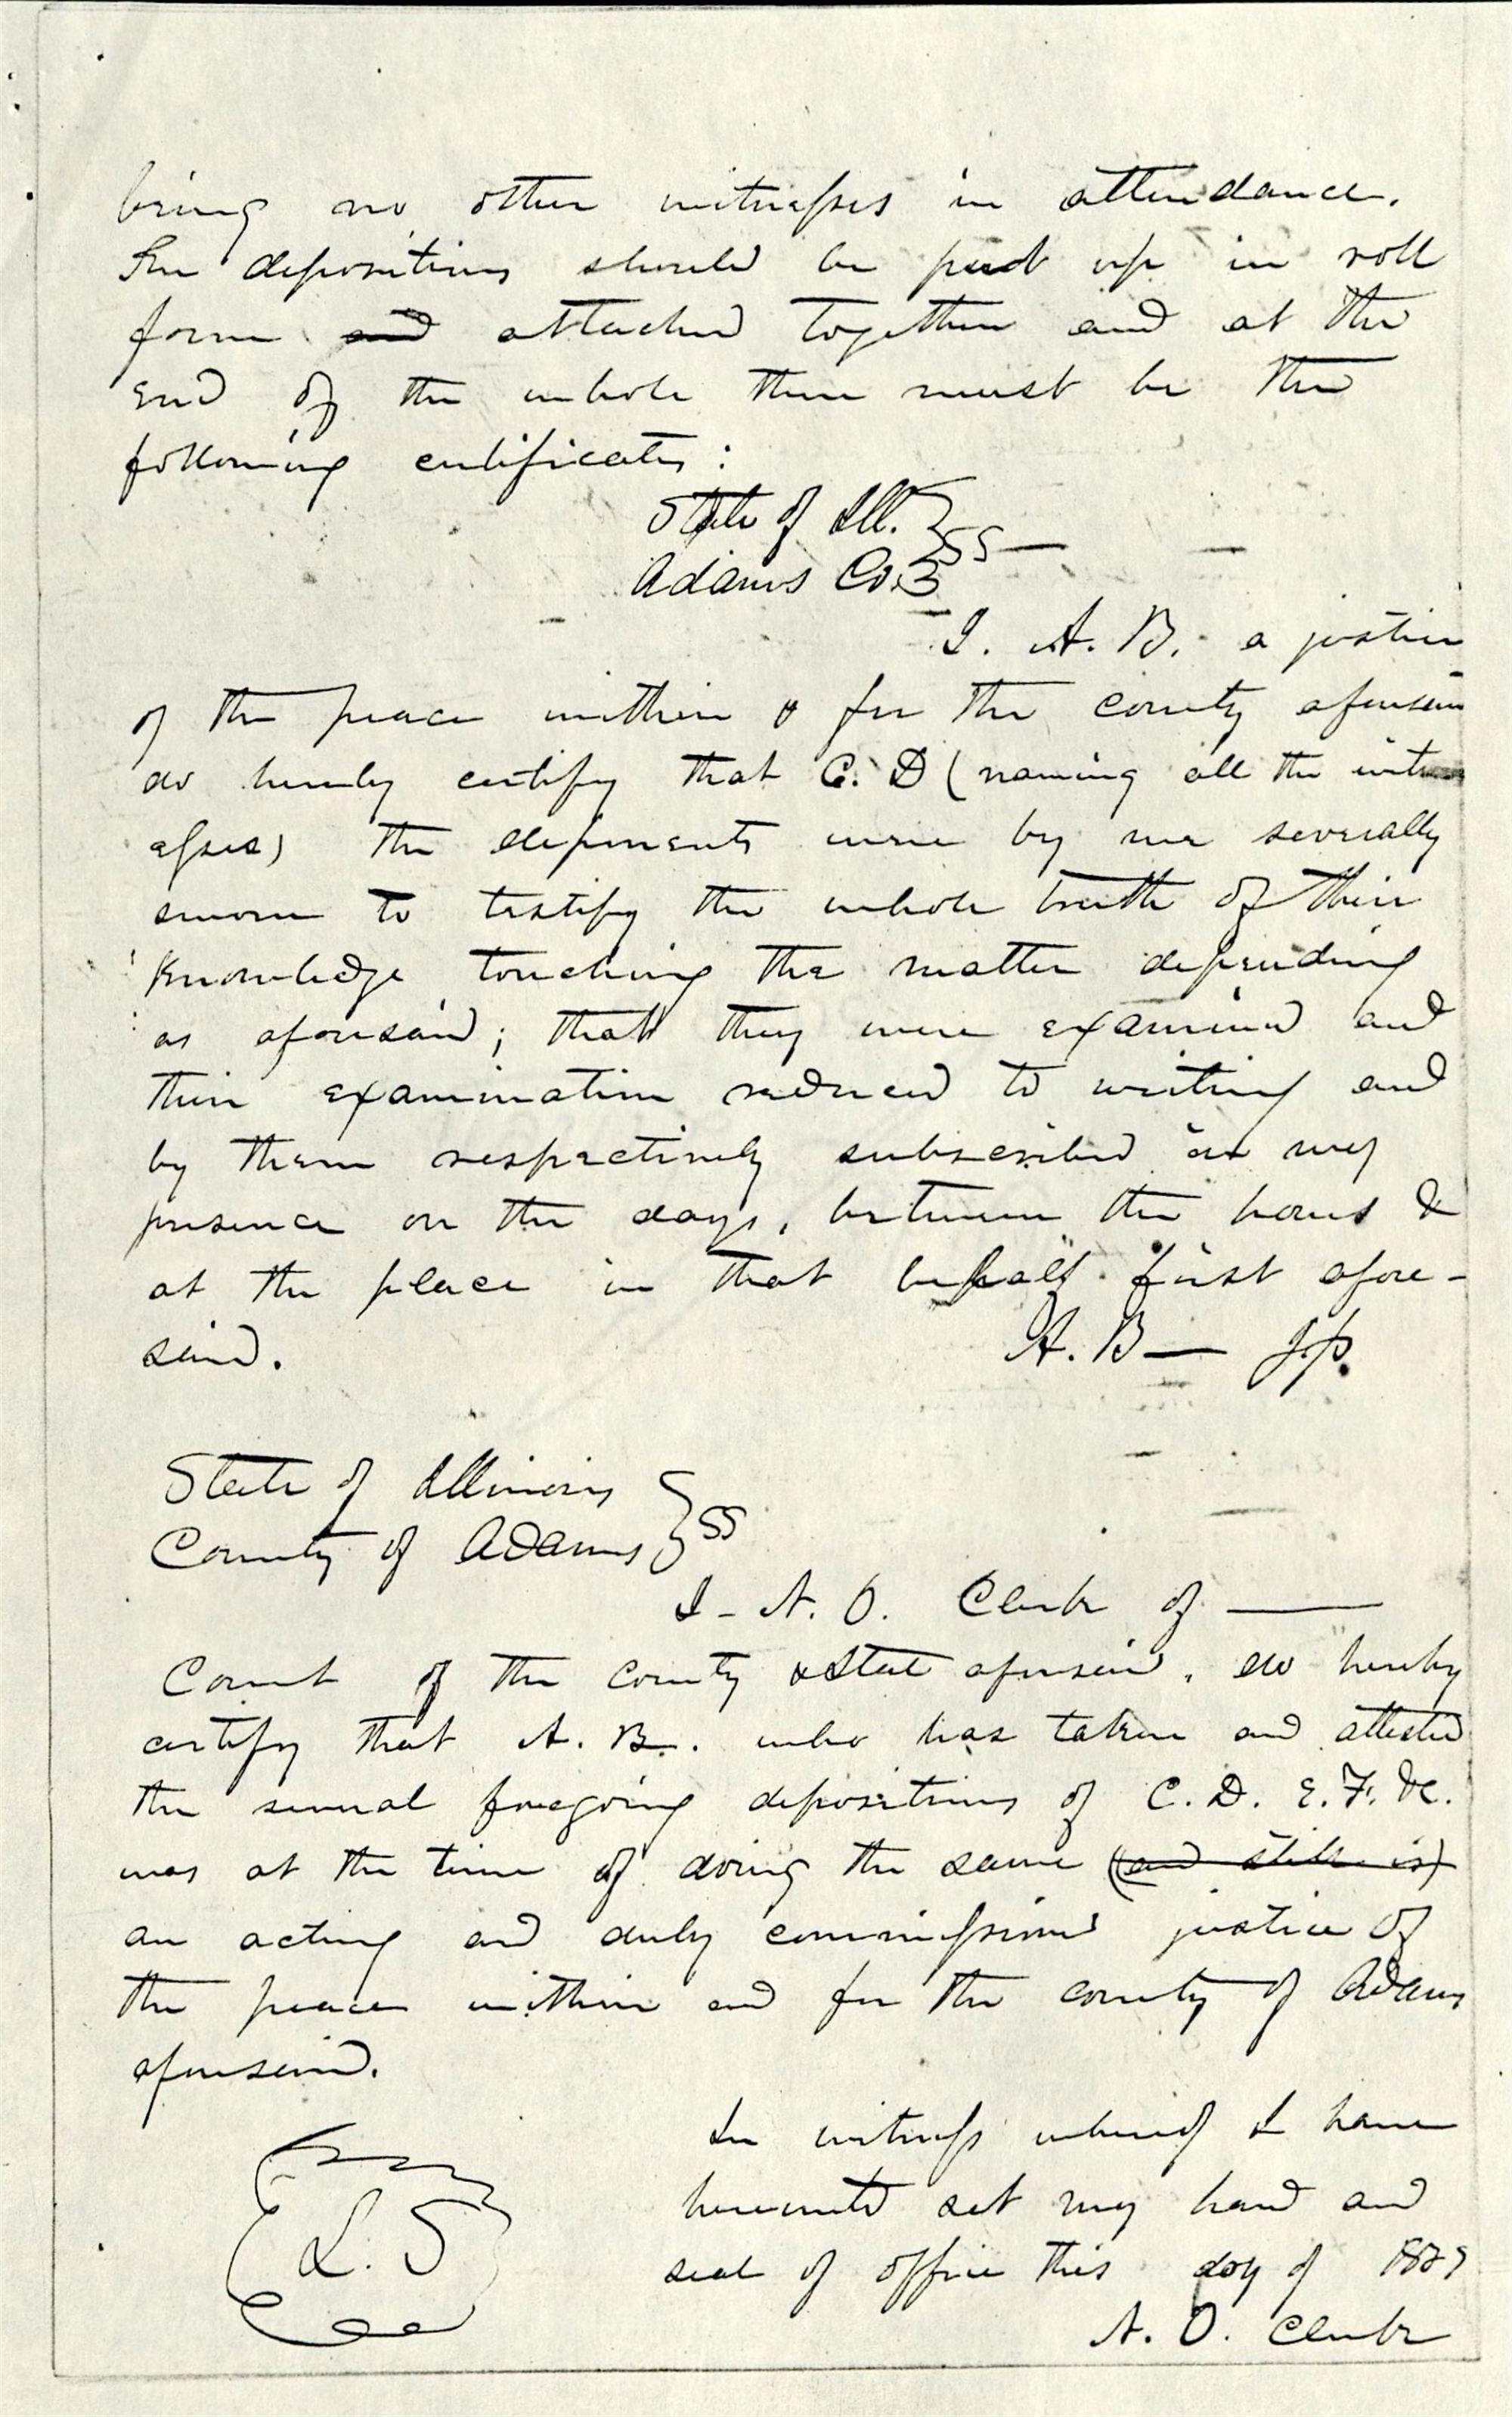 being no other witnesses in attendance.
The depositions should be put up in roll
form and attached together and at the
end of the whole there must be the
following certificates:
State of Ill. } ss —
Adams Co. }
I. A. B. a justice
of the peace within & for the county aforesaid
do hereby certify that C. D (naming all the witn
esses) the deponents were by me severally
sworn to testify the whole truth of their
knowledge touching the matter depending
as aforesaid; that they were examined and
their examination reduced to writing and
by them respectively subscribed in my
presence on the days, between the hours &
at the place in that behalf first afore-
said.
A. B — J.P.
State of Illinois } ss
County of Adams }
I - N. O. Clerk of ———
Court of the county & State aforesaid, do hereby
certify that A. B. who has taken and attested
the several foregoing depositions of C. D. E. F. &c.
was at the time of doing the same (and still is)
an acting and duly commissioned justice of
the peace within and for the county of Adams
aforesaid.
In witness whereof I have
hereunto set my hand and
L. S
seal of office this day of
N. O. Clerk